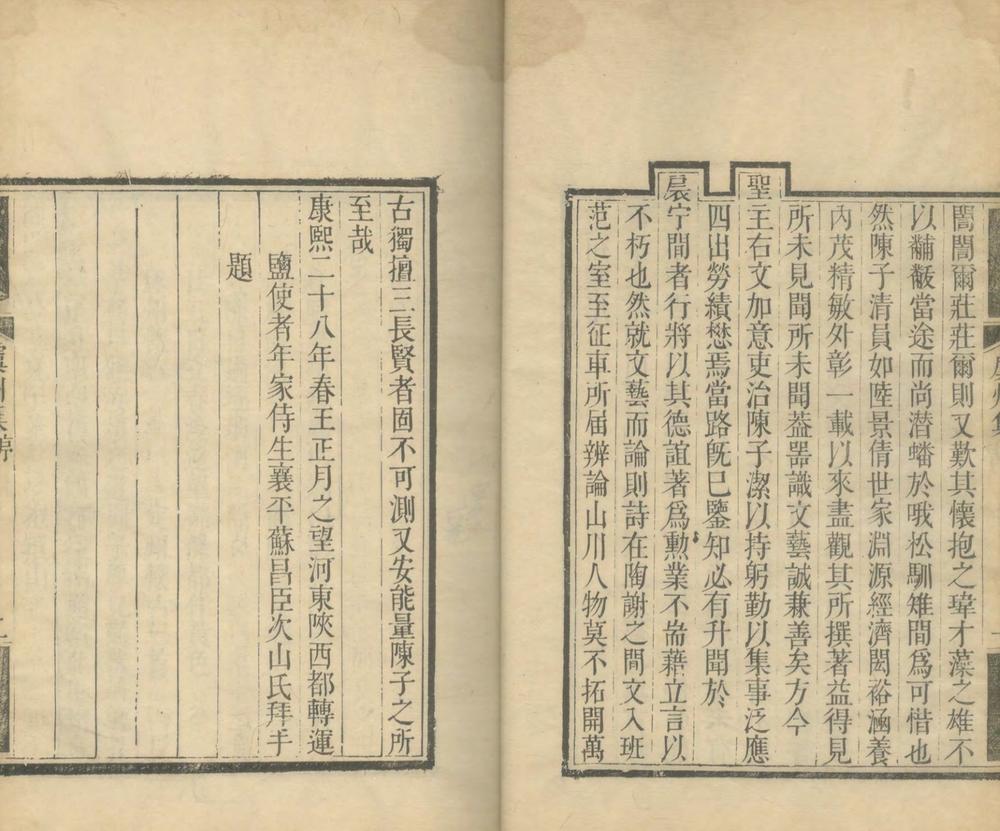 誾誾爾莊莊爾則又歎其懷抱之瑋才藻之雄不
以黼黻當途而尚潛蟠於哦松馴雉間爲可惜也
然陳子清員如陸景倩世家淵源經濟閎裕涵養
內茂精敏外彰一載以來盡觀其所撰著益得見
所未見聞所未聞葢器識文藝誠兼善矣方今
聖主右文加意吏治陳子潔以持躬勤以集事泛應
四出勞績懋焉當路旣已鑒知必有升聞於
扆宁間者行將以其德誼著爲勲業不耑藉立言以
不朽也然就文藝而論則詩在陶謝之間文入班
范之室至征車所届辨論山川人物莫不拓開萬
古獨擅三長賢者固不可測又安能量陳子之所
至哉
康熙二十八年春王正月之望河東陜西都轉運
鹽使者年家侍生襄平蘇昌臣次山氏拜手
題